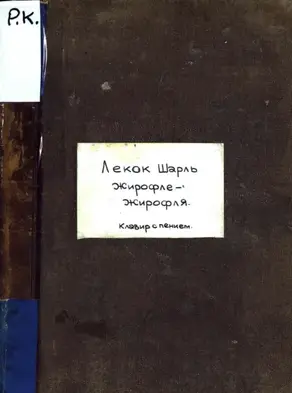 Р.К.
Лекок Шарль
Жирофле-
Жирофля.
Клавир с пением.